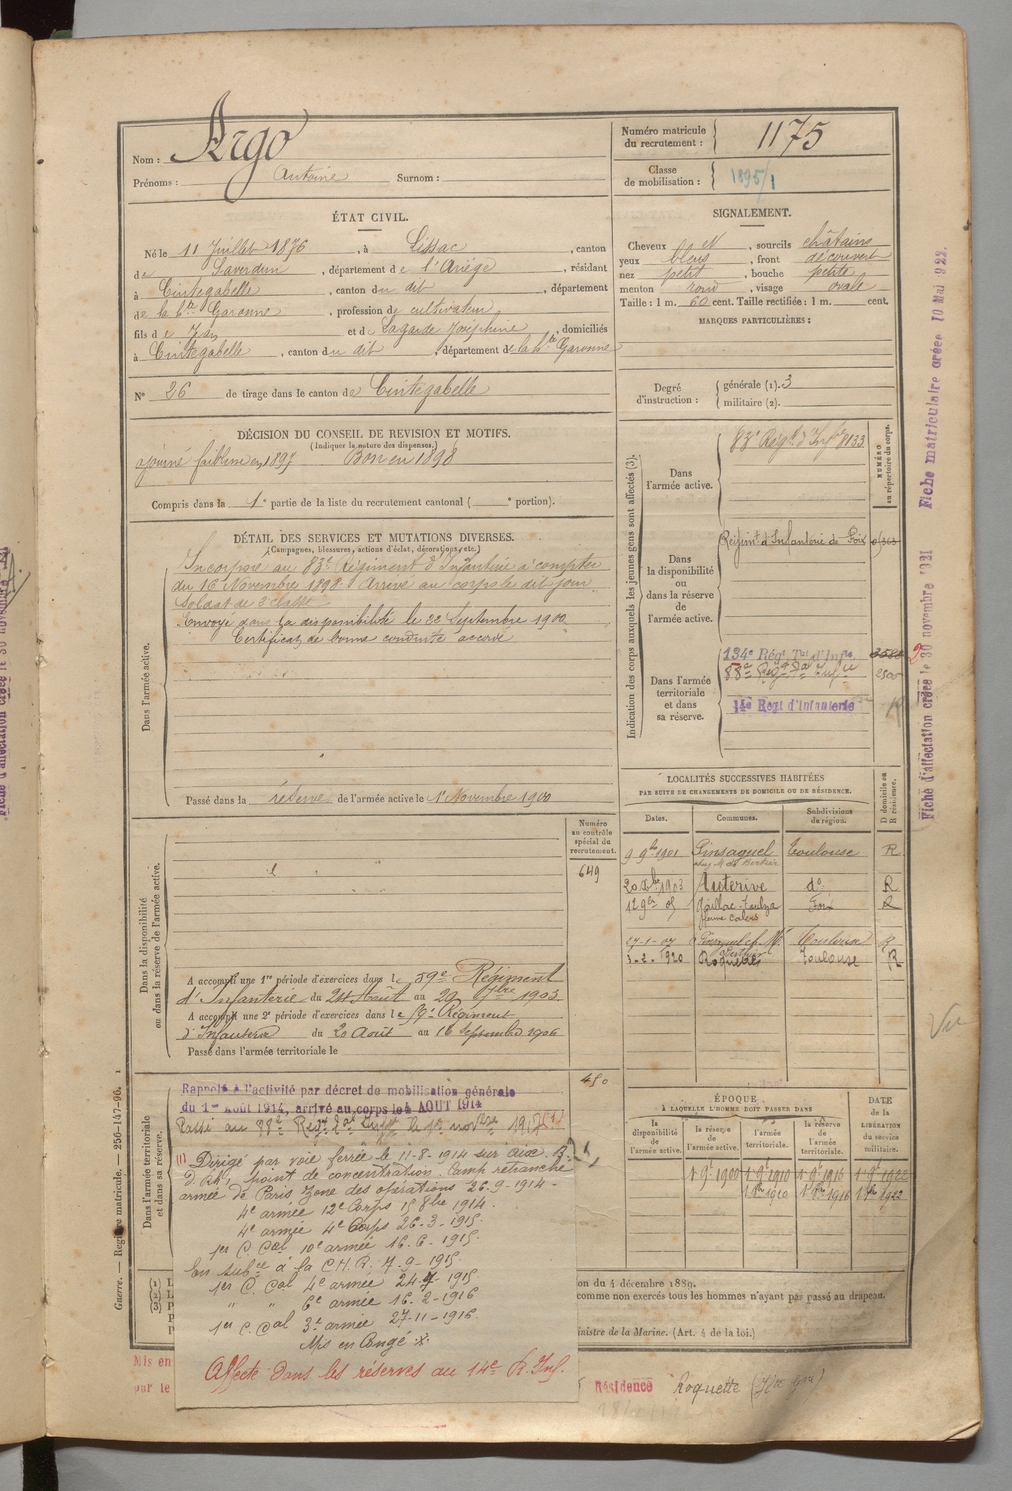 Nom : Argo
Prénoms : Antoine Surnom :
Numéro matricule du recrutement : 1175
Classe de mobilisation : 1895/1
ÉTAT CIVIL.
Né le 11 Juillet 1876, à Lissac, canton
de Saverdun, département de l'Ariège, résidant
à Cintegabelle, canton du dit, département
de la hte Garonne, profession de cultivateur
fils de Jean et de Lagarde Joséphine, domiciliés
à Cintegabelle, canton du dit, département de la hte Garonne
N° 26 de tirage dans le canton de Cintegabelle
SIGNALEMENT.
Cheveux N, sourcils châtains
yeux bleus, front découvert
nez petit, bouche petite
menton rond, visage ovale
Taille : 1 m. 60 cent. Taille rectifiée : 1 m. cent.
MARQUES PARTICULIÈRES :
Degré d'instruction : générale (1). 3
militaire (2).
DÉCISION DU CONSEIL DE REVISION ET MOTIFS.
(Indiquer la nature des dispenses.)
ajourné faiblesse en 1897 Bon en 1898
Compris dans la 1e partie de la liste du recrutement cantonal ( e portion).
DÉTAIL DES SERVICES ET MUTATIONS DIVERSES.
(Campagnes, blessures, actions d'éclat, décorations, etc.)
Dans l'armée active.
Incorporé au 83e Régiment d'Infanterie à compter
du 16 Novembre 1898. Arrivé au corps le dit jour
Soldat de 2e classe
Envoyé dans la disponibilité le 22 Septembre 1900
Certificat de bonne conduite accordé
Passé dans la réserve de l'armée active le 1er Novembre 1900
Indication des corps auxquels les jeunes gens sont affectés (3).
NUMÉRO au répertoire du corps.
Dans l'armée active.
83e Régt d'Infrie 8133
Dans la disponibilité ou dans la réserve de l'armée active.
Régimt d'Infanterie de Foix
Dans l'armée territoriale et dans sa réserve.
134e Régt Tal d'Infie
14e Regt d'Infanterie
LOCALITÉS SUCCESSIVES HABITÉES
PAR SUITE DE CHANGEMENTS DE DOMICILE OU DE RÉSIDENCE.
Dates. Communes. Subdivisions de région. D domicile ou R résidence.
9 9bre 1901 Pinsaguel Toulouse R
20 Xbre 1903 Auterive do R
12 9bre 05 Gaillac-Toulza Foix R
27-1-07 Toulouse R
3-2-1920 Roquettes Toulouse R
Dans la disponibilité ou dans la réserve de l'armée active.
Numéro au contrôle spécial du recrutement.
649
A accompli une 1re période d'exercices dans le 59e Régiment
d'Infanterie du 24 Août au 20 7bre 1903
A accompli une 2e période d'exercices dans le Régiment
d'Infanterie du 20 Août au 16 Septembre 1906
Passé dans l'armée territoriale le
Dans l'armée territoriale et dans sa réserve.
450
Rappelé à l'activité par décret de mobilisation générale
du 1er Août 1914, arrivé au corps le 4 AOUT 1914
(1) Dirigé par voie ferrée le 11-8-1914 sur Aix
point de concentration. Camp retranché
armée de Paris zone des opérations 26-9-1914-
4e armée 12e Corps 15 8bre 1914.
4e armée 4e Corps 26-3-1915.
1er C. Cal 10e armée 16-6-1915.
En subce à la C.H.R. 7-9-1915
1er C. Cal 4e armée 24-7-1915
" " 6e armée 16-2-1916
1er C. Cal 3e armée 27-11-1916.
Mis en Congé
Affecté dans les réserves au 14e R. Inf.
ÉPOQUE
A LAQUELLE L'HOMME DOIT PASSER DANS
la disponibilité de l'armée active. la réserve de l'armée active. l'armée territoriale. la réserve de l'armée territoriale.
DATE de la LIBÉRATION du service militaire.
1 9e 1900 1 9e 1910 1 9e 1916 1 9e 1922
on du 4 décembre 1889.
comme non exercés tous les hommes n'ayant pas passé au drapeau.
ministre de la Marine. (Art. 4 de la loi.)
Mis en
our le
Résidence Roquette
Guerre. — Registre matricule. — 256-147-96.
Fiche matriculaire créée 10 Mai 1922.
Fiche d'affectation créée le 30 novembre 1921
Vu